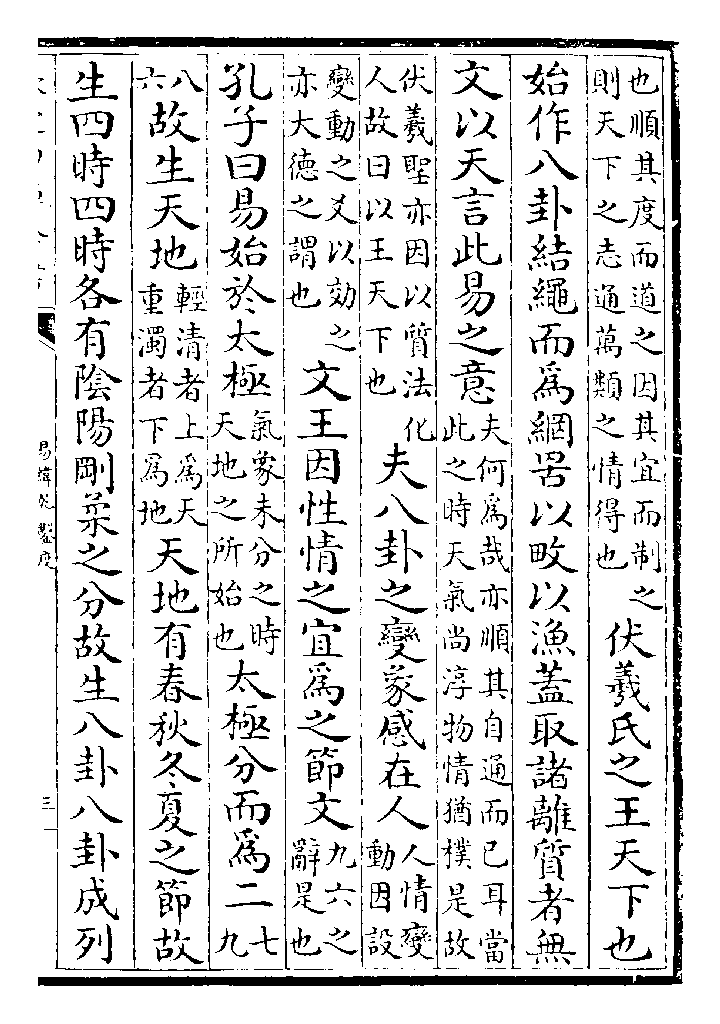 也順其度而道之因其宜而制之則天下之志通萬類之情得也伏羲氏之王天下也
始作八卦結繩而為網罟以畋以漁蓋取諸離質者無
文以天言此易之意夫何為哉亦順其自通而已耳當此之時天氣尚淳物情猶樸是故
伏羲聖亦因以質法化人故曰以王天下也夫八卦之變象感在人人情變動因設
變動之爻以効之亦大德之謂也文王因性情之宜為之節文九六之辭是也
孔子曰易始於太極氣象未分之時天地之所始也太極分而為二七九
八六故生天地輕清者上為天重濁者下為地天地有春秋冬夏之節故
生四時四時各有陰陽剛柔之分故生八卦八卦成列
易緯乾鑿度
三